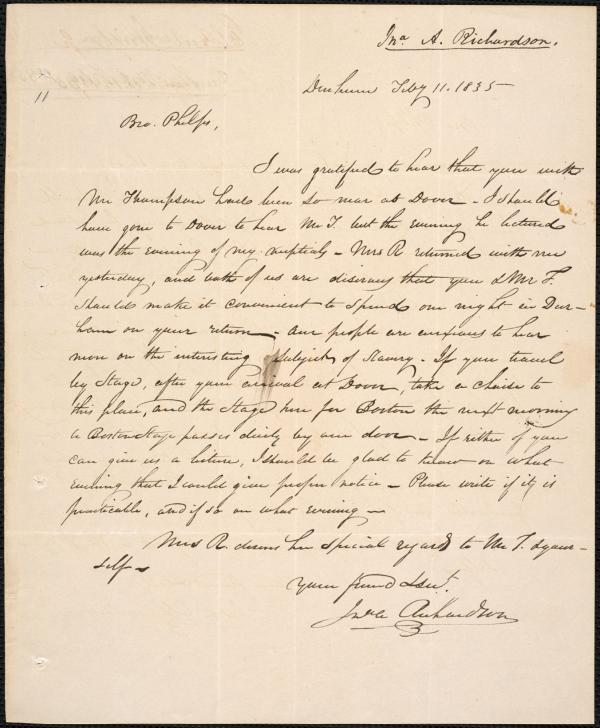 Jno. A. Richardson.
Durham Feby 11. 1835
11
Bro. Phelps,
I was gratified to hear that you with
Mr Thompson had been so near as Dover - I should
have gone to Dover to hear Mr T. but the evening he lectured
was the evening of my nuptials - Mrs R returned with me
yesterday, and both of us are desirous that you & Mr T.
should make it convenient to spend one night in Dur-
ham on your return - Our people are anxious to hear
more on the interesting subject of slavery - If you travel
by Stage, after your arrival at Dover, take a chaise to
this place, and the stage here for Boston the next morning
a Boston Stage passes directly by our door - If either of you
can give us a lecture, I should be glad to know on what
evening that I could give proper notice - Please write if it is
practicable, and if so on what evening -
Mrs R. desires her special regards to Mr T. & your-
self -
Your friend & servt.
Jno A Richardson